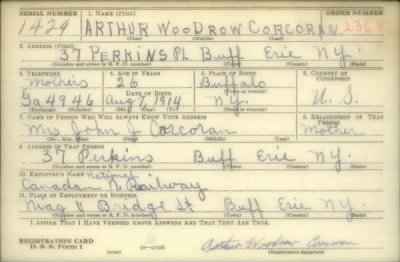 SERIAL NUMBER 1. NAME (Print) ORDER NUMBER
1429 ARTHUR WOODROW CORCORAN 2368
(First) (Middle) (Last)
2. ADDRESS (Print)
37 PERKINS PL Buff Erie N.Y.
(Number and street or R. F. D. number) (Town) (County) (State)
3. TELEPHONE 4. AGE IN YEARS 5. PLACE OF BIRTH 6. COUNTRY OF CITIZENSHIP
Mothers 26 Buffalo
DATE OF BIRTH
Ga 4946 Aug 7, 1914 N.Y. U. S.
(Exchange) (Number) (Mo.) (Day) (Yr.) (State or country)
7. NAME OF PERSON WHO WILL ALWAYS KNOW YOUR ADDRESS 8. RELATIONSHIP OF THAT PERSON
Mrs John J Corcoran Mother
(Mr., Mrs., Miss) (First) (Middle) (Last)
9. ADDRESS OF THAT PERSON
37 Perkins Buff Erie N.Y.
(Number and street or R. F. D. number) (Town) (County) (State)
10. EMPLOYER'S NAME
national
Canadan Railway
11. PLACE OF EMPLOYMENT OR BUSINESS
Niag & Bridge St Buff Erie N.Y.
(Number and street or R. F. D. number) (Town) (County) (State)
I AFFIRM THAT I HAVE VERIFIED ABOVE ANSWERS AND THAT THEY ARE TRUE.
REGISTRATION CARD
D. S. S. Form 1 (over) Arthur Woodrow Corcoran
(Registrant's signature)